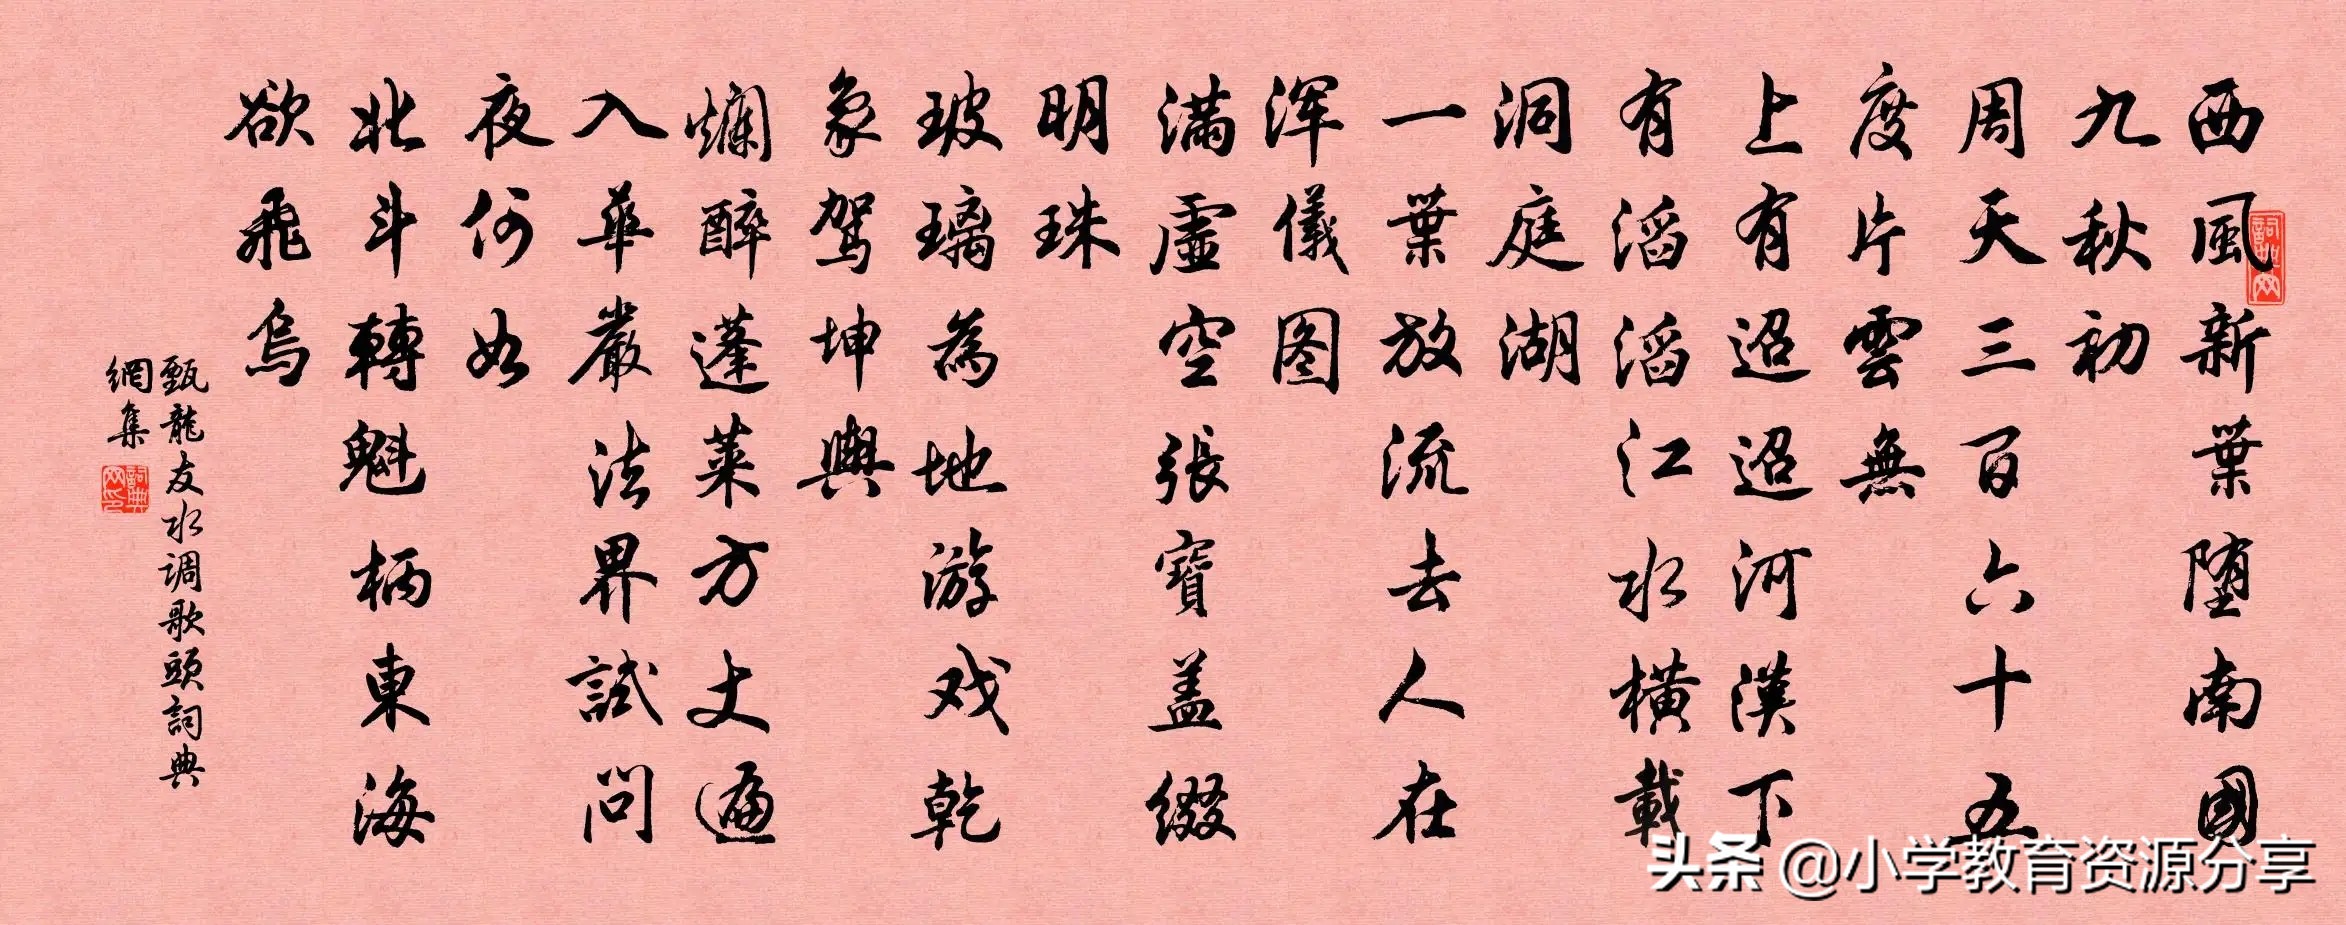 西風新葉堕南國
九秋初
周天三百六十五
度片雲無
上有迢迢河漢下
有滔滔江水橫載
洞庭湖
一葉放流去人在
浑儀图
滿虛空張寶盖缀
明珠
玻璃為地游戏乾
象駕坤輿
爛醉蓬萊方丈遍
入華嚴法界試問
夜何如
北斗轉魁柄東海
欲飛烏
甄龍友水调歌頭詞典
網集
头条 @小学教育资源分享